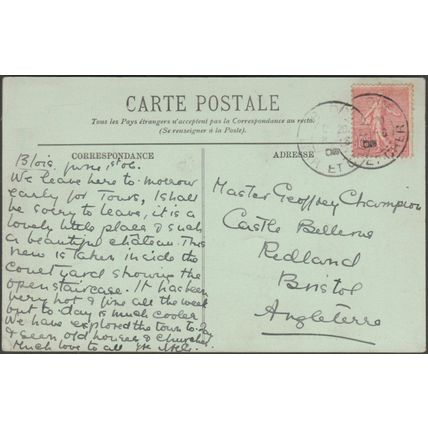 CARTE POSTALE
Tous les Pays étrangers n'acceptent pas la Correspondance au recto.
(Se renseigner à la Poste).
CORRESPONDANCE
Blois June 1st 06.
We leave here to-morrow
early for Tours, I shall
be sorry to leave, it is a
lovely little place & such
a beautiful château. This
view is taken inside the
Courtyard showing the
open staircase. It has been
very hot & fine all the week
but to-day is much cooler
We have explored the town to-day
& seen old houses & Churches.
Much love to all
ADRESSE
Master Geoffrey Champion
Castle Bellevue
Redland
Bristol
Angleterre
ET CHER